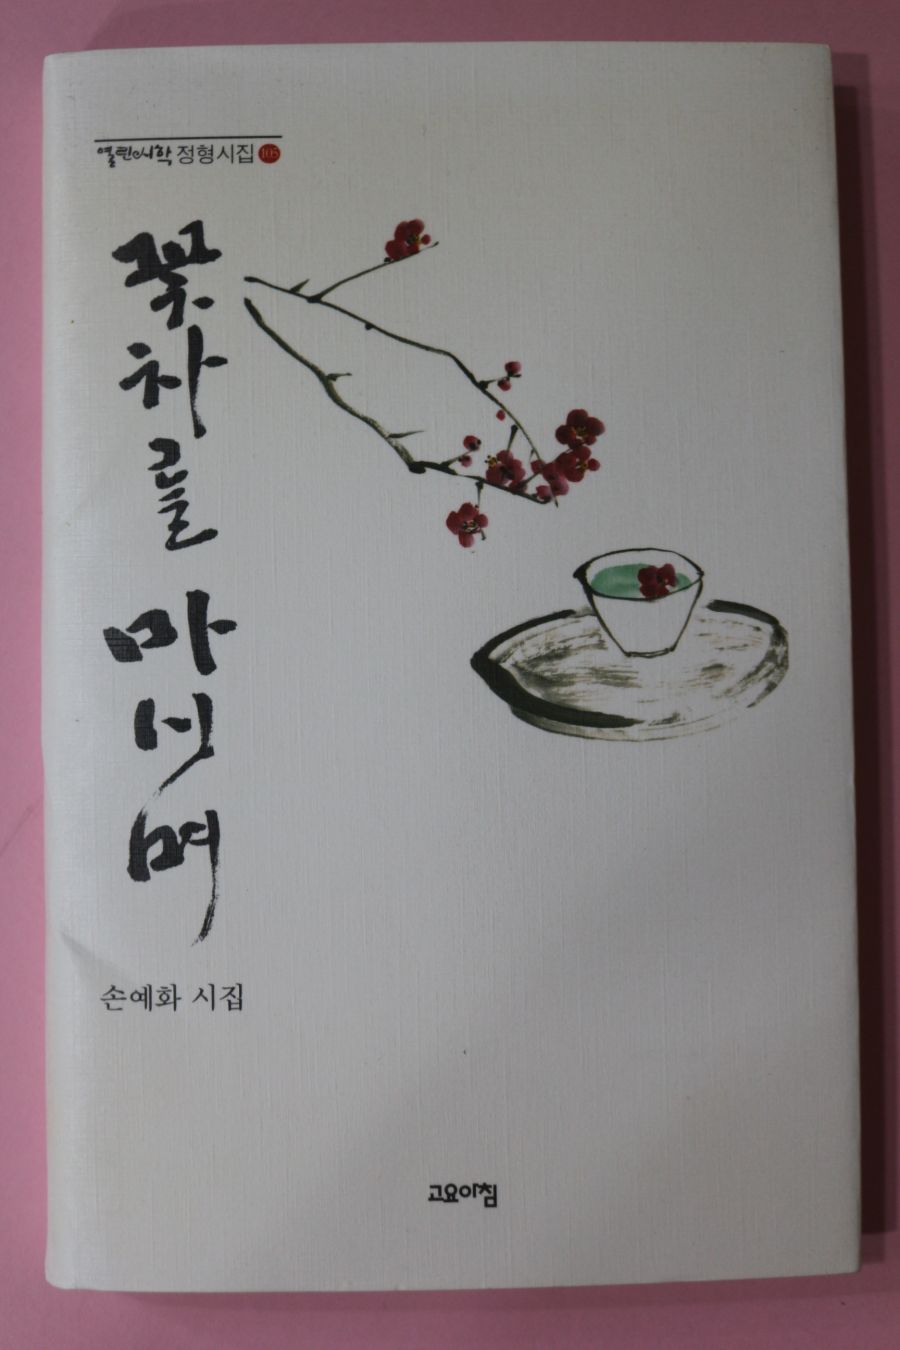 열린시학 정형시집 105
꽃차를 마시며
손예화 시집
고요아침